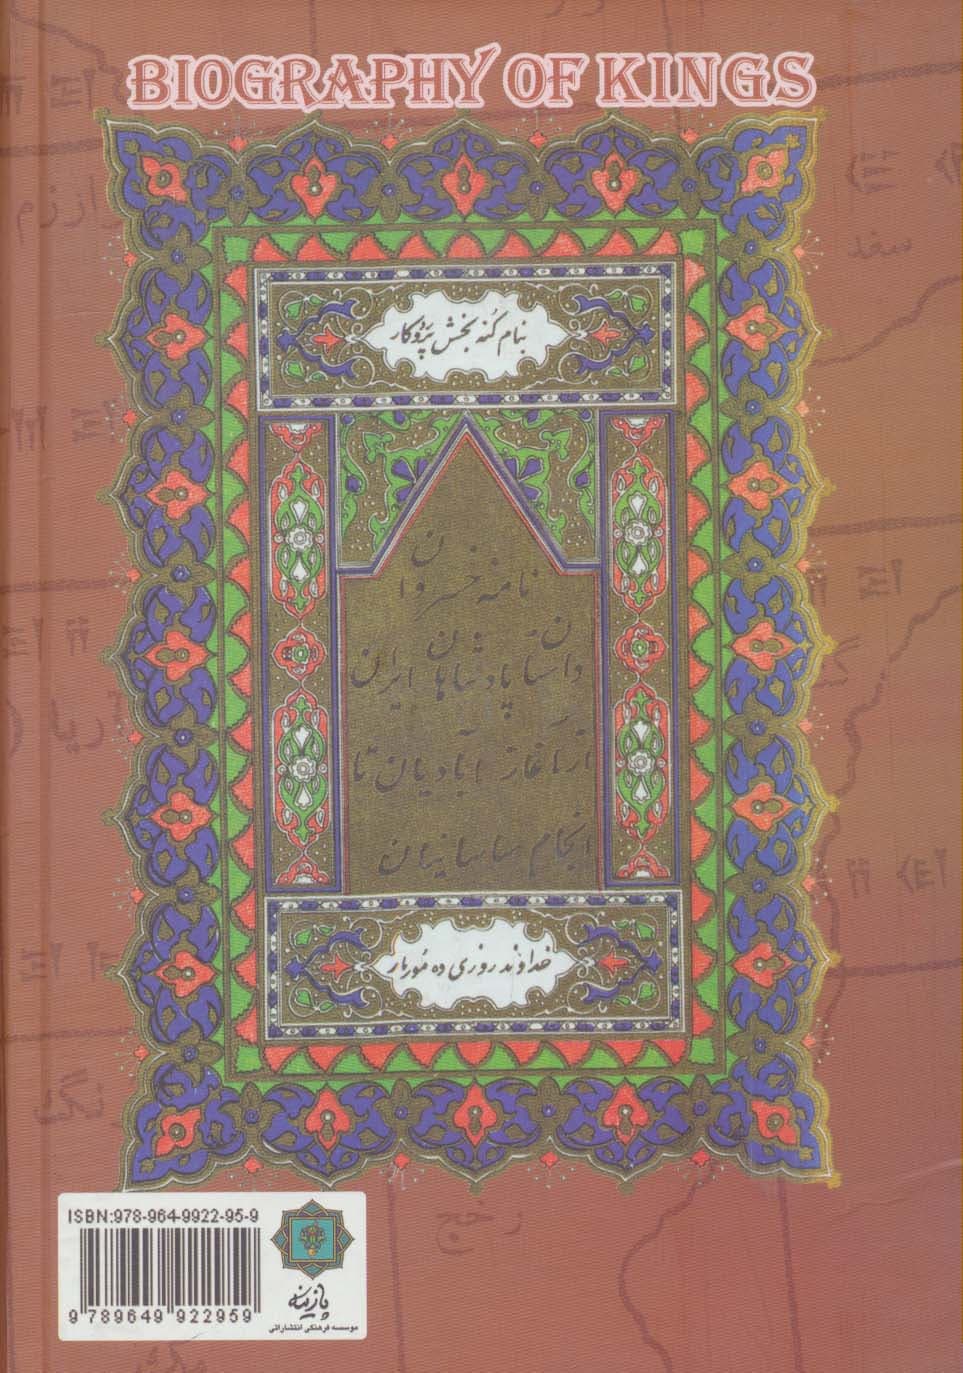 BIOGRAPHY OF KINGS
بنام کُنه بخش پَژوکار
نامه خسروان
داستان پادشاهان ایران
از آغاز آبادیان تا
انجام ساسانیان
خداوند روزی ده مُوربار
سغد
رخج
ISBN:978-964-9922-95-9
9 789649 922959
پازینه
موسسه فرهنگی انتشاراتی